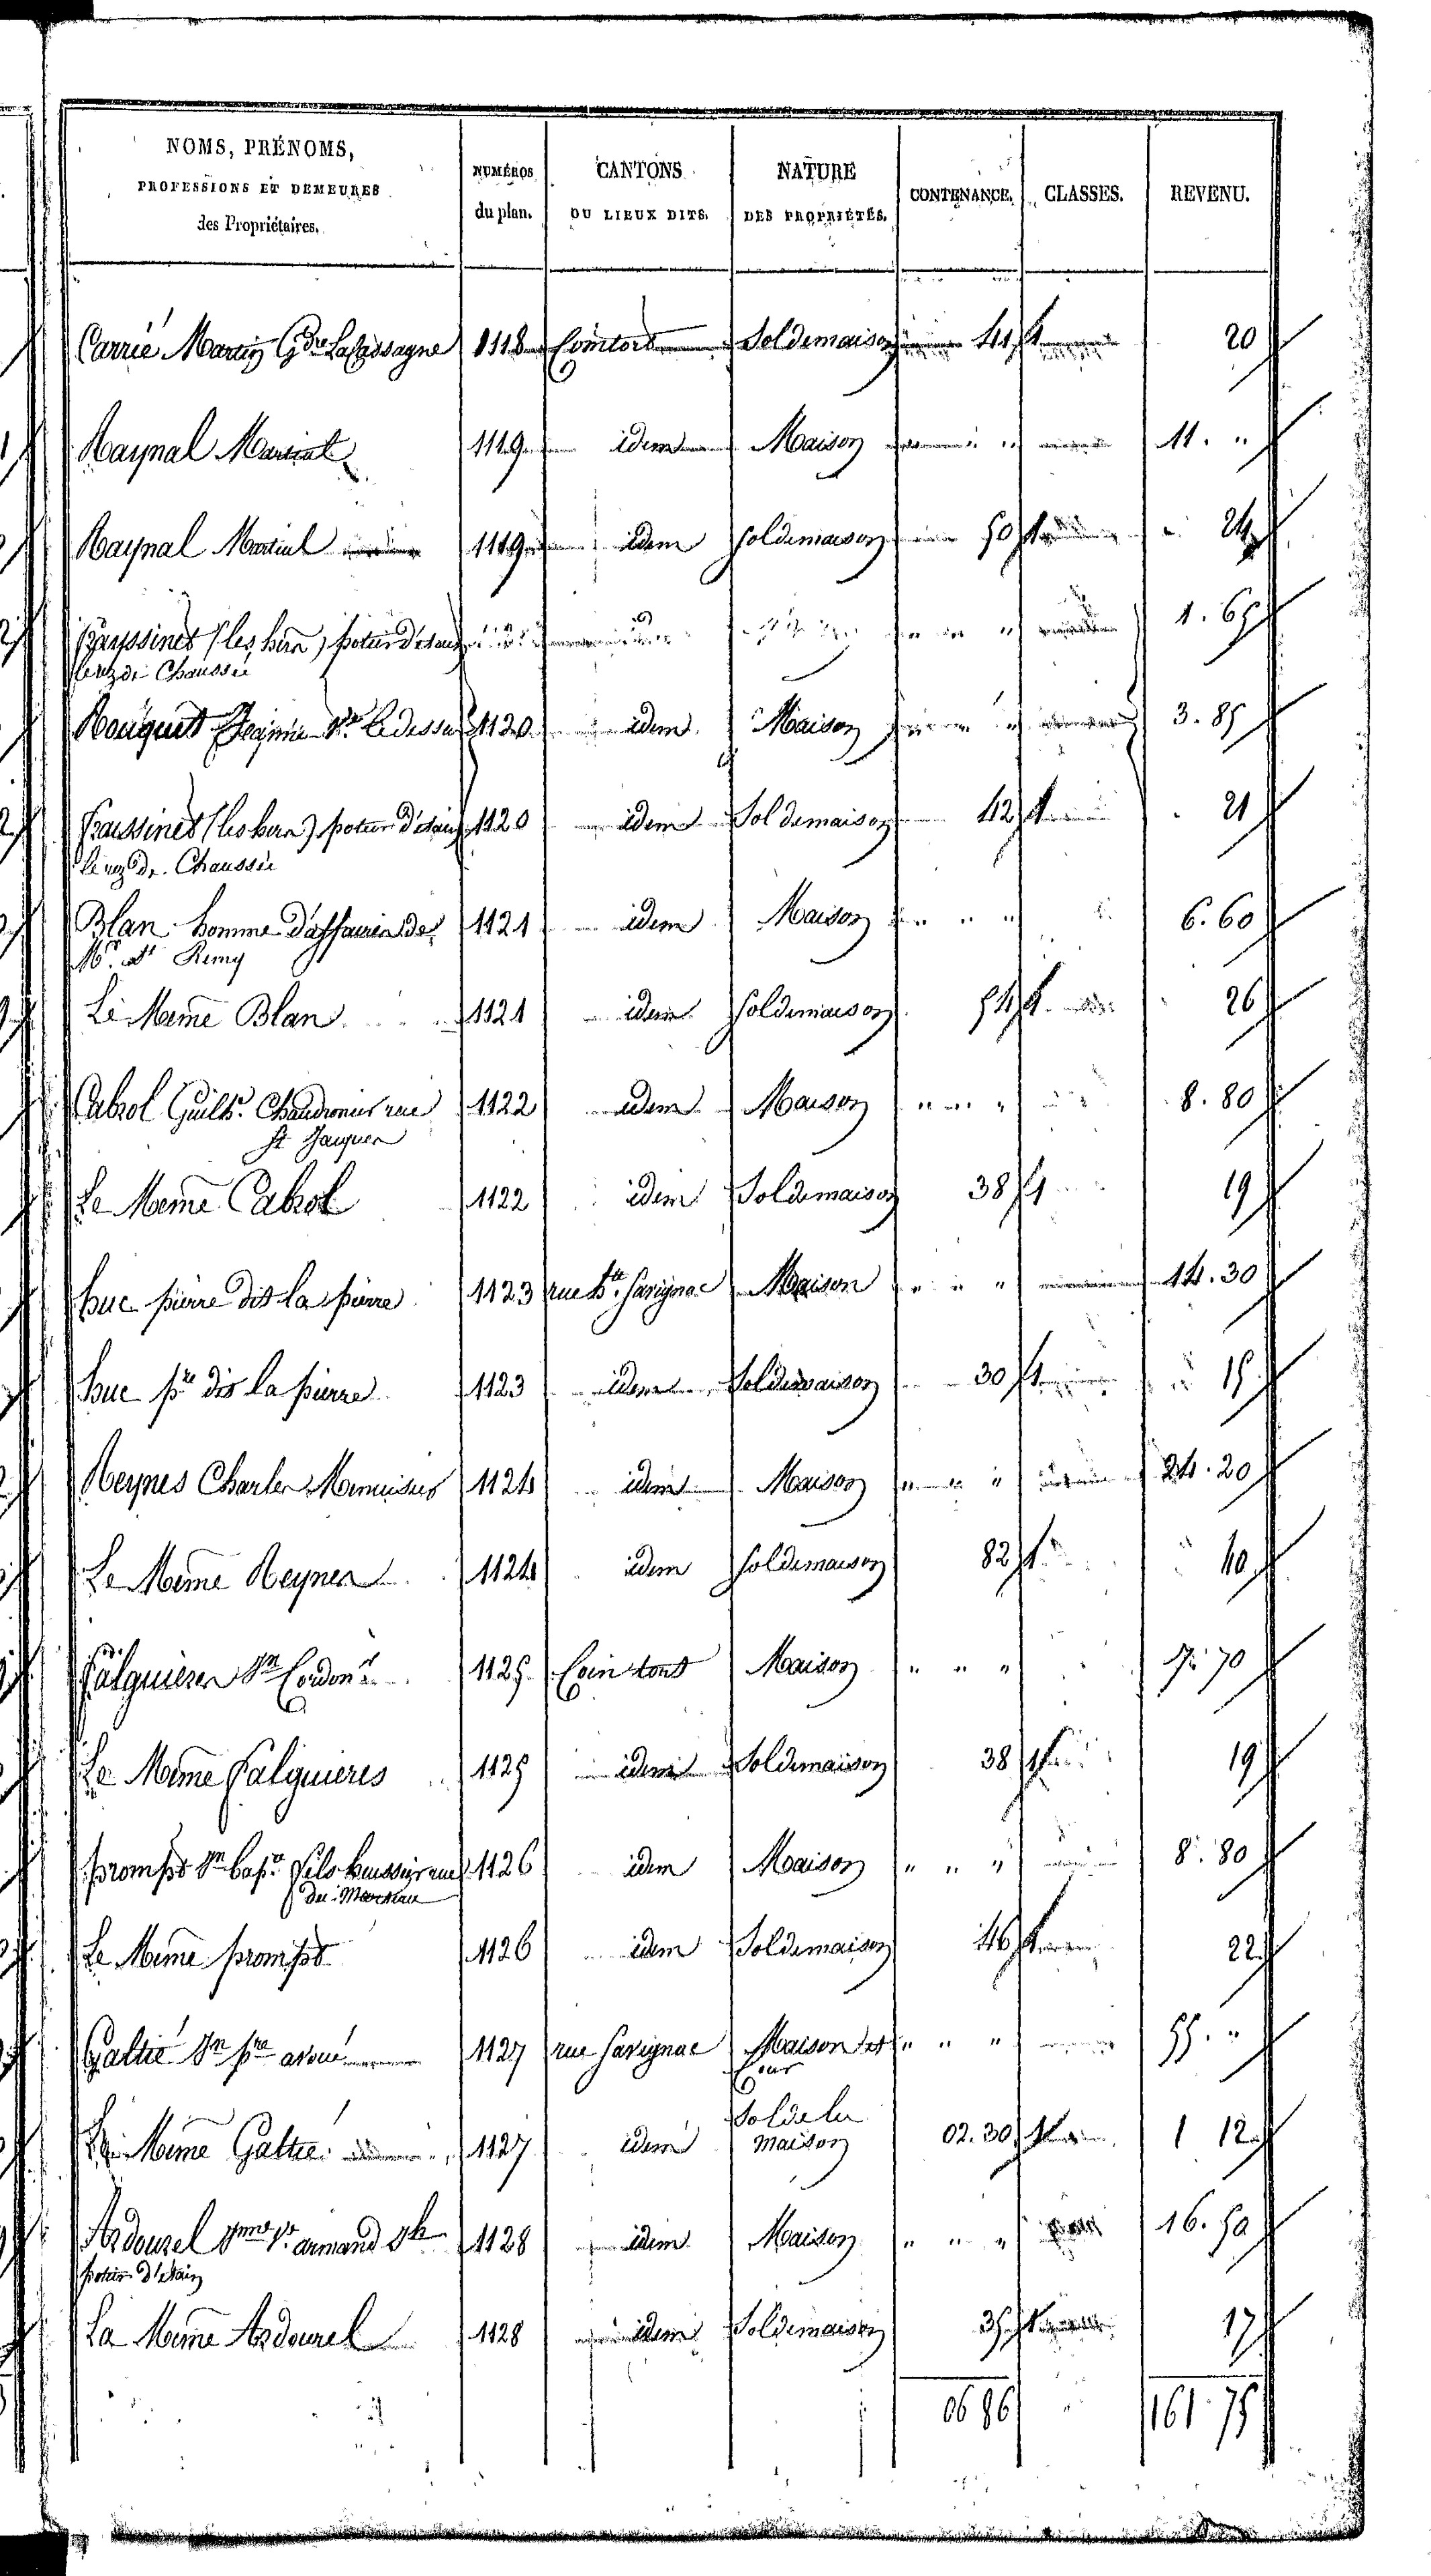 NOMS, PRÉNOMS, PROFESSIONS ET DEMEURES des Propriétaires. | NUMÉROS du plan. | CANTONS OU LIEUX DITS. | NATURE DES PROPRIÉTÉS. | CONTENANCE. | CLASSES. | REVENU.
Carrié Martin Gdre Lafassagne 1118 Cointort Sol de maison 41 1 20
Raynal Martial 1119 idem Maison " " 11. "
Raynal Martial 1119 idem Sol de maison 50 1 24
Frayssinet (les hers) potier d'etain " " 1.65
le rez de Chaussée
Rouquet 1120 idem Maison " 3.85
Frayssinet (les hers) potier d'etain 1120 idem Sol de maison 42 1 21
le rez de Chaussée
Blan homme d'affaires de 1121 idem Maison " " " 6.60
Mr. St Remy
Le Meme Blan 1121 idem Sol de maison 54 1 26
Cabrol Guilh. Chaudronier rue 1122 idem Maison " " " 8.80
St Jacques
Le Meme Cabrol 1122 idem Sol de maison 38 1 19
huc pierre dit la pierre 1123 rue hte. Savignac Maison " " " 14.30
huc pre dit la pierre 1123 idem Sol de maison 30 1 15
Reynes Charles Menuisier 1124 idem Maison " " " 24.20
Le Meme Reynes 1124 idem Sol de maison 82 1 40
Falguieres Jn Cordonr. 1125 Coin tort Maison " " " 7.70
Le Meme Falguieres 1125 idem Sol de maison 38 1 19
prompt Jn bapte fils huissier rue 1126 idem Maison " " " 8.80
du Marteau
Le Meme prompt 1126 idem Sol de maison 46 1 22
Galtié Jn pre avoué 1127 rue Savignac Maison et " " " 55. "
Cour
Le Meme Galtié 1127 idem Sol de la 02.30 1 1 12
maison
Ardourel ve. armand 1128 idem Maison " " " 16.50
potier d'etain
La Meme Ardourel 1128 idem Sol de maison 35 1 17
06 86 161 75